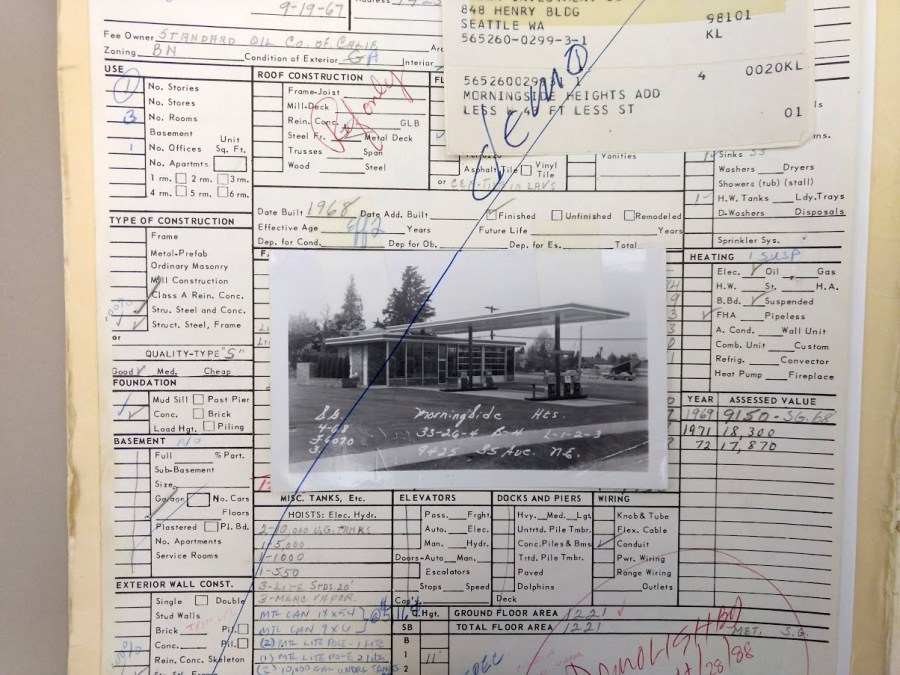 9-19-67
Address
848 HENRY BLDG
SEATTLE WA 98101
565260-0299-3-1 KL
Fee Owner STANDARD OIL CO. of CALIF
Zoning BN Condition of Exterior GA Interior
4 0020KL
MORNINGSIDE HEIGHTS ADD
LESS ST 01
demo
USE
1 No. Stories
No. Stores
3 No. Rooms
Basement
1 No. Offices Unit Sq. Ft.
No. Apartmts
1 rm. 2 rm. 3rm.
4 rm. 5 rm. 6rm.
ROOF CONSTRUCTION
Frame-Joist
Mill-Deck
Rein. Conc. GLB
Steel Fr. Metal Deck
Trusses Span
Wood Steel
Asphalt Tile Vinyl Tile
or
Vanities
Sinks SS
Washers Dryers
Showers (tub) (stall)
H.W. Tanks Ldy.Trays
D-Washers Disposals
Sprinkler Sys.
Date Built 1968 Date Add. Built Finished Unfinished Remodeled
Effective Age Years Future Life Years
Dep. for Cond. Dep. for Ob. Dep. for Es. Total
TYPE OF CONSTRUCTION
Frame
Metal-Prefab
Ordinary Masonry
Mill Construction
Class A Rein. Conc.
Stru. Steel and Conc.
Struct. Steel, Frame
or
QUALITY-TYPE "S"
Good Med. Cheap
HEATING 1 SUSP
Elec. Oil Gas
H.W. St. H.A.
B.Bd. Suspended
FHA Pipeless
A. Cond. Wall Unit
Comb. Unit Custom
Refrig. Convector
Heat Pump Fireplace
FOUNDATION
Mud Sill Post Pier
Conc. Brick
Load Hgt. Piling
YEAR ASSESSED VALUE
1969 9150 - SG. 68
1971 18,300
72 17,870
4-68 Morningside Hts.
33-26-4 B-4 L-1-2-3
9425 35 Ave. N.E.
BASEMENT No
Full % Part.
Sub-Basement
Size
Garage No. Cars
Floors
Plastered Pl. Bd.
No. Apartments
Service Rooms
MISC. TANKS, Etc.
HOISTS: Elec. Hydr.
2-10,000 U.G. TANKS
1-5,000
1-1000
1-550
3-LITE STDS. 20'
3-MERC VAPOR
MTL CAN 18 X 54
MTL CAN 9 X 6
(2) MTL LITE POLE - 1 LITE
(1) MTL LITE POLE 2 LITES
ELEVATORS
Pass. Frght.
Auto. Elec.
Man. Hydr.
Doors-Auto Man.
Escalators
Stops Speed
Cap'y
DOCKS AND PIERS
Hvy. Med. Lgt.
Untrtd. Pile Tmbr.
Conc. Piles & Bms
Trtd. Pile Tmbr.
Paved
Dolphins
Deck
WIRING
Knob & Tube
Flex. Cable
Conduit
Pwr. Wiring
Range Wiring
Outlets
EXTERIOR WALL CONST.
Single Double
Stud Walls
Brick Pil.
Conc. Pil.
Rein. Conc. Skeleton
Hgt. GROUND FLOOR AREA 1221
SB TOTAL FLOOR AREA 1221 MET. S.G.
B
1 11'
2
DEMOLISHED